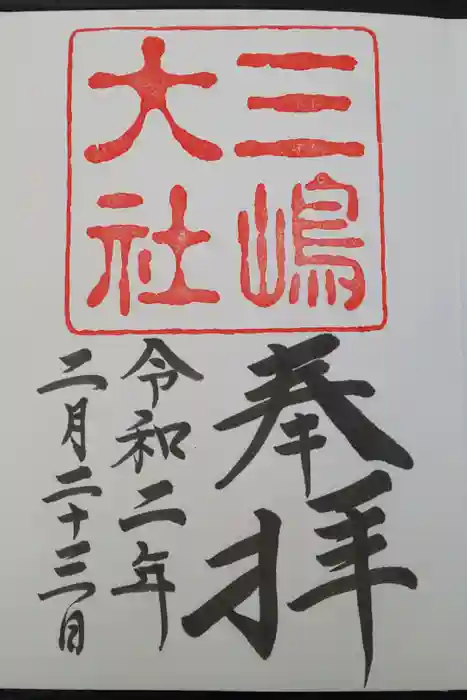 三嶋
大社
奉拝
令和二年
二月二十三日